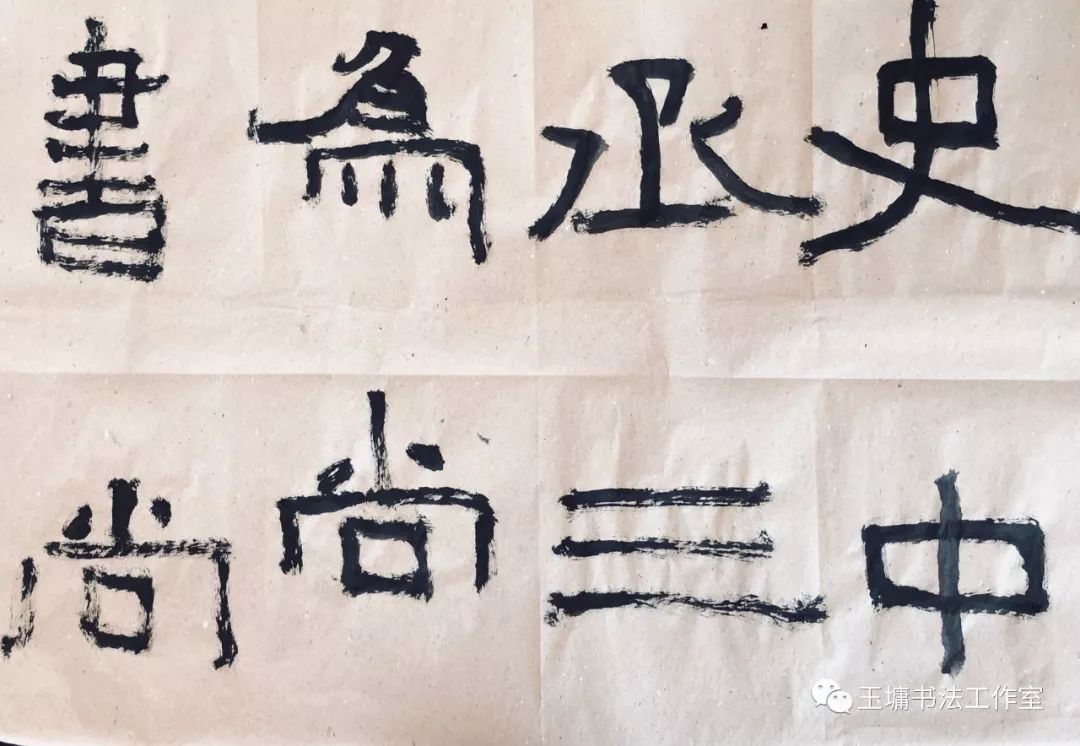 史中
丞三
為尚
書尚
玉墉书法工作室